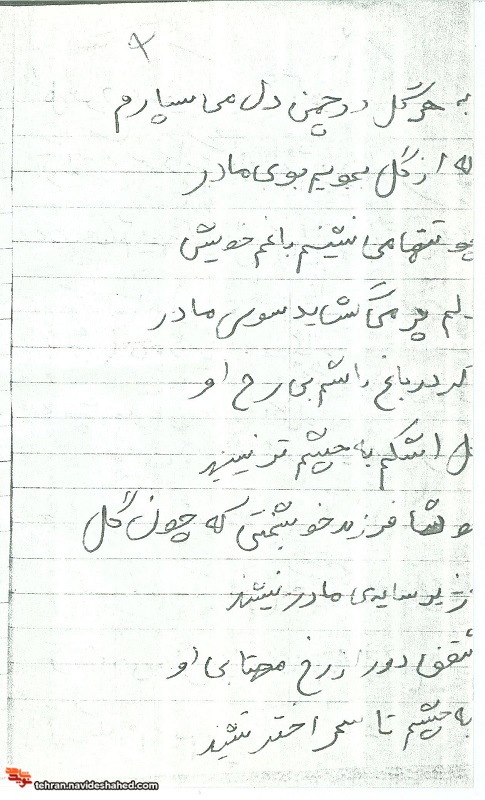 ۹
به هر گل در چمن دل می سپارم
که از گل بجویم بوی مادر
چو تنها می نشینم با غم خویش
دلم پر می گشاید سوی مادر
اگر در باغ باشم بی رخ او
گل اشکم به چشم تر نشیند
خوشا فرزند خوشبختی که چون گل
زیر سایه ی مادر نشیند
شفق دور از رخ مهتابی او
به چشم تا سحر اختر نشیند
tehran.navideshahed.com